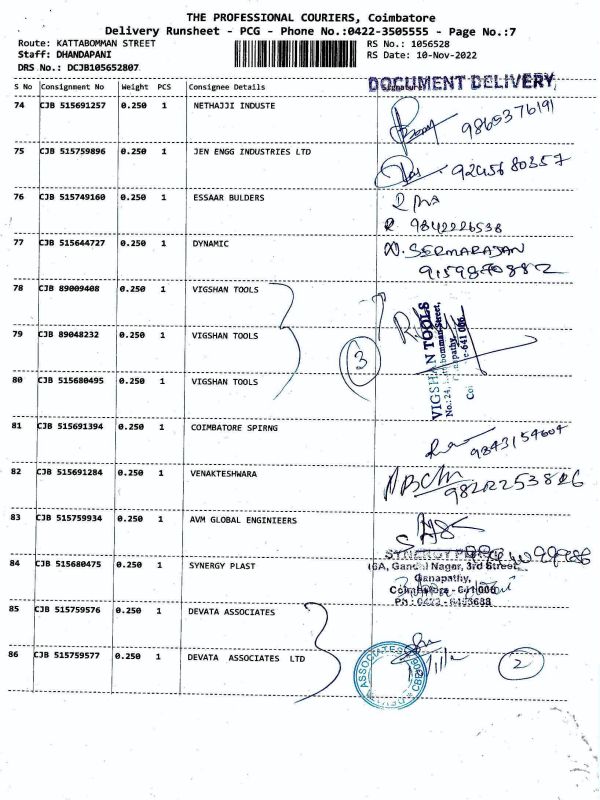 THE PROFESSIONAL COURIERS, Coimbatore
Delivery Runsheet - PCG - Phone No.:0422-3505555 - Page No.:7
Route: KATTABOMMAN STREET RS No.: 1056528
Staff: DHANDAPANI RS Date: 10-Nov-2022
DRS No.: DCJB105652807
DOCUMENT DELIVERY
S No Consignment No Weight PCS Consignee Details
74 CJB 515691257 0.250 1 NETHAJJI INDUSTE 9865376191
75 CJB 515759896 0.250 1 JEN ENGG INDUSTRIES LTD 9245680357
76 CJB 515749160 0.250 1 ESSAAR BULDERS
9842226538
77 CJB 515644727 0.250 1 DYNAMIC
78 CJB 89009408 0.250 1 VIGSHAN TOOLS
79 CJB 89048232 0.250 1 VIGSHAN TOOLS
80 CJB 515680495 0.250 1 VIGSHAN TOOLS
3
VIGSHAN TOOLS
81 CJB 515691394 0.250 1 COIMBATORE SPIRNG 9843154604
82 CJB 515691284 0.250 1 VENAKTESHWARA
83 CJB 515759934 0.250 1 AVM GLOBAL ENGINIEERS
84 CJB 515680475 0.250 1 SYNERGY PLAST
SYNERGY
Gandhi Nagar, 3rd Street,
Ganapathy,
Coimbatore - 641 006
85 CJB 515759576 0.250 1 DEVATA ASSOCIATES
86 CJB 515759577 0.250 1 DEVATA ASSOCIATES LTD
2
ASSOCIATES